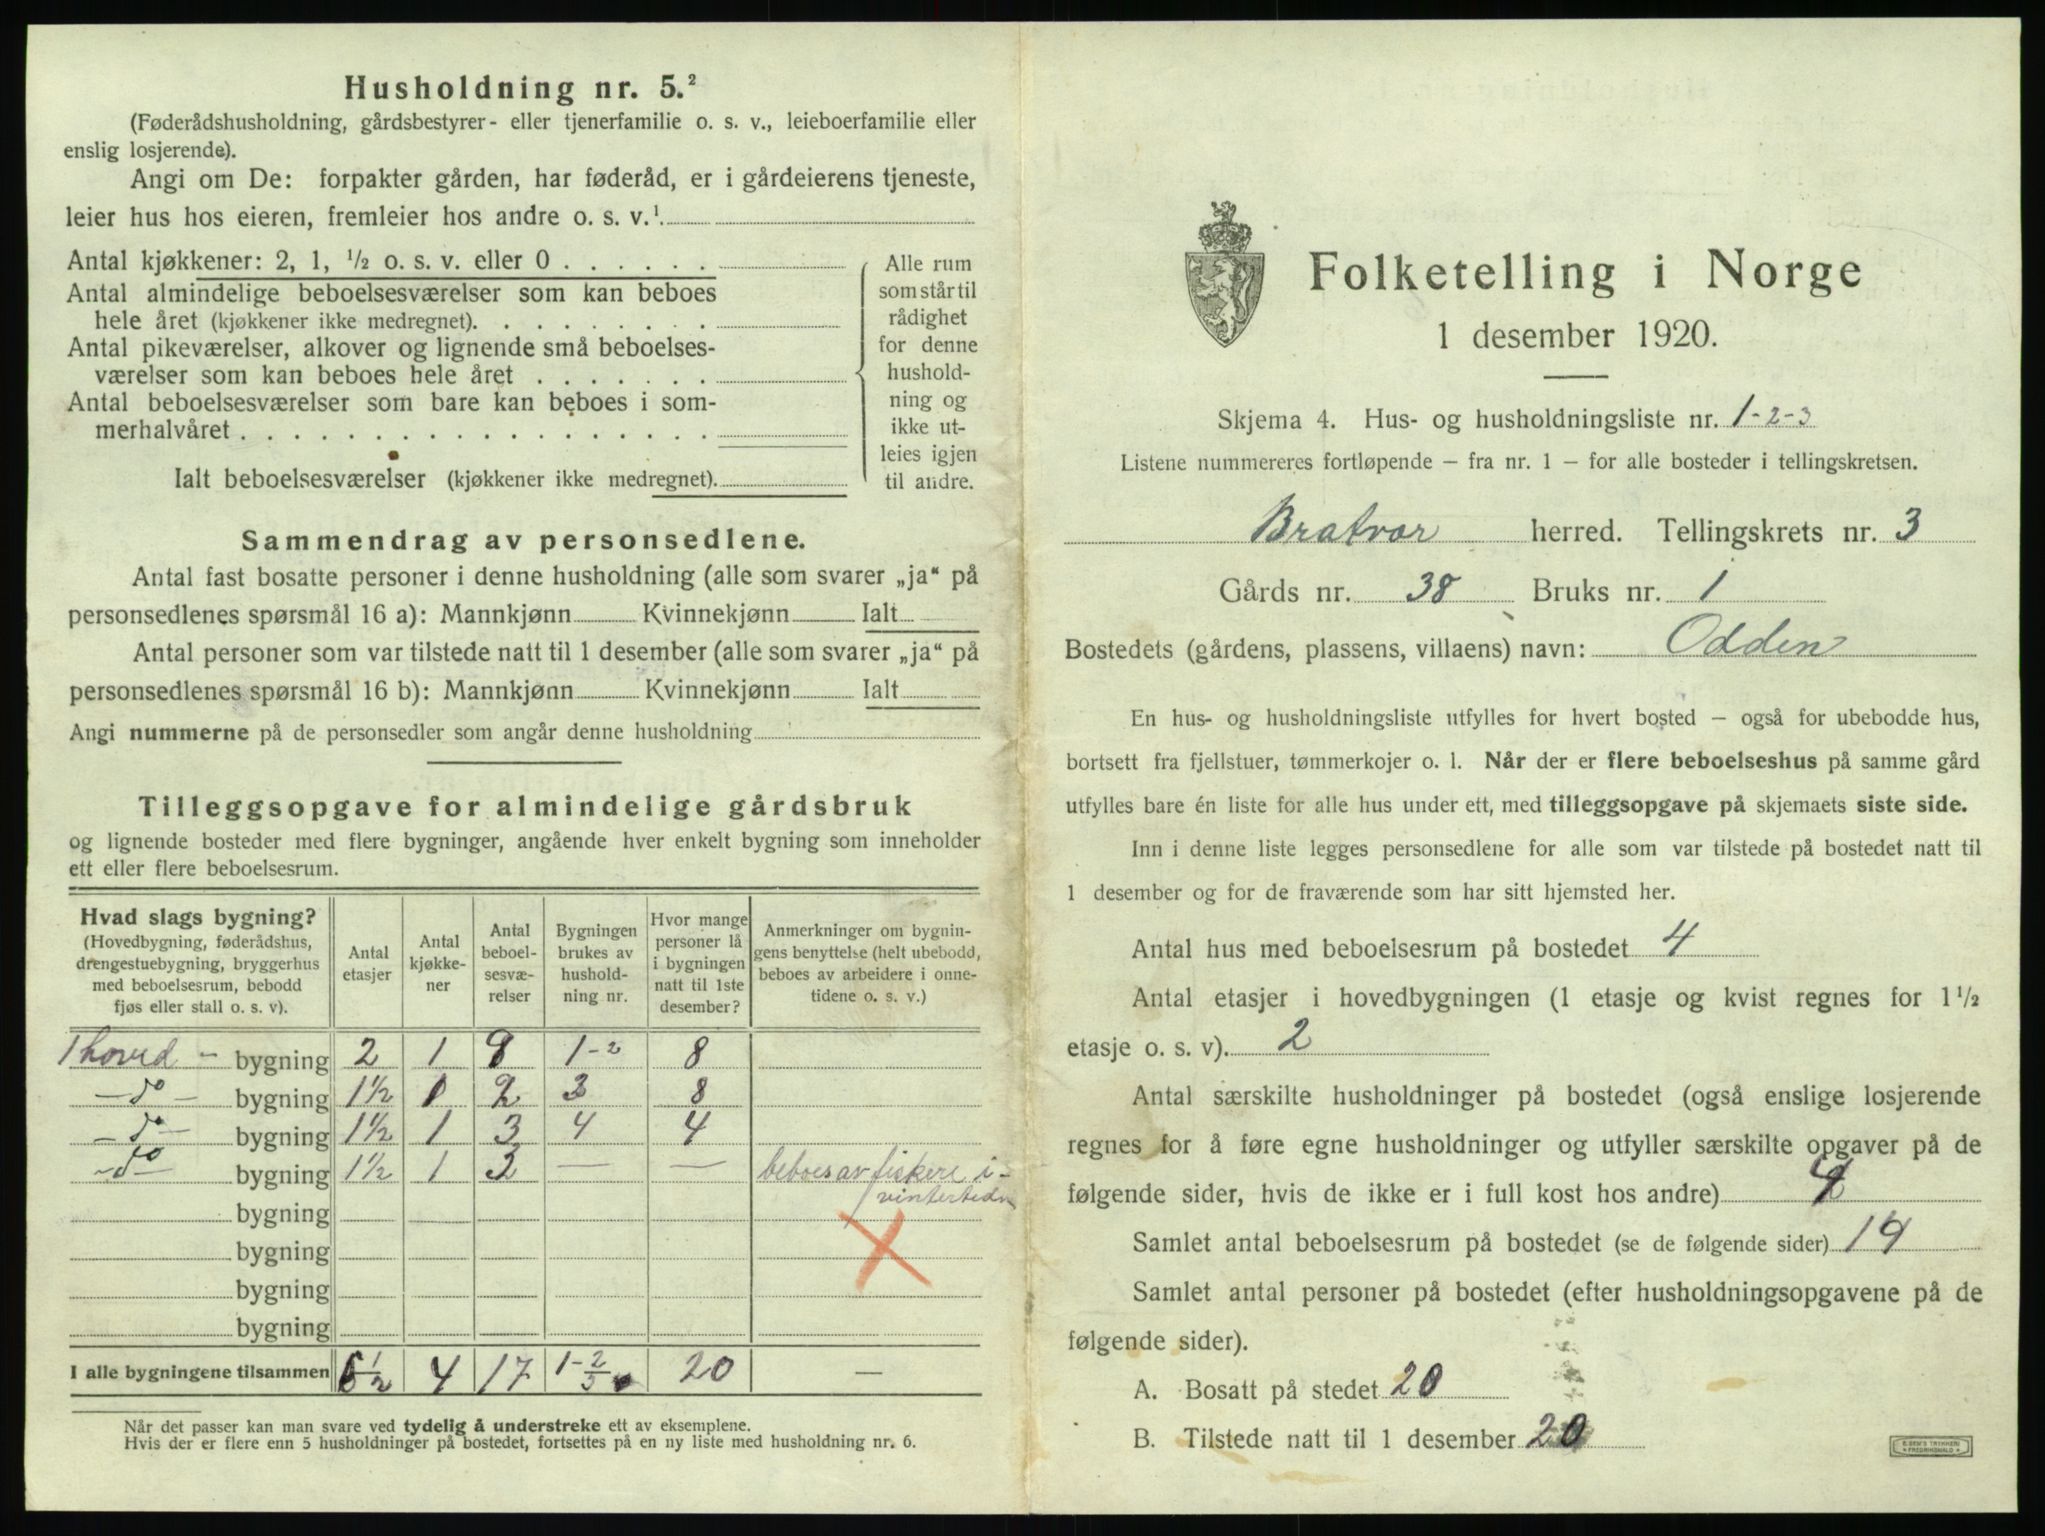 Husholdning nr. 5.²
(Føderådshusholdning, gårdsbestyrer- eller tjenerfamilie o. s. v., leieboerfamilie eller
enslig losjerende).
Angi om De: forpakter gården, har føderåd, er i gårdeierens tjeneste,
leier hus hos eieren, fremleier hos andre o. s. v.¹
Antal kjøkkener: 2, 1, ½ o. s. v. eller 0 . . . . . .
Antal almindelige beboelsesværelser som kan beboes
hele året (kjøkkener ikke medregnet). . . . . . . . .
Antal pikeværelser, alkover og lignende små beboelses-
værelser som kan beboes hele året . . . . . . .
Antal beboelsesværelser som bare kan beboes i som-
merhalvåret . . . . . . . . . . . . . . . . . .
Ialt beboelsesværelser (kjøkkener ikke medregnet).
Alle rum
som står til
rådighet
for denne
hushold-
ning og
ikke ut-
leies igjen
til andre.
Sammendrag av personsedlene.
Antal fast bosatte personer i denne husholdning (alle som svarer „ja“ på
personsedlenes spørsmål 16 a): Mannkjønn Kvinnekjønn Ialt
Antal personer som var tilstede natt til 1 desember (alle som svarer „ja“ på
personsedlenes spørsmål 16 b): Mannkjønn Kvinnekjønn Ialt
Angi nummerne på de personsedler som angår denne husholdning
Tilleggsopgave for almindelige gårdsbruk
og lignende bosteder med flere bygninger, angående hver enkelt bygning som inneholder
ett eller flere beboelsesrum.
Hvad slags bygning?
(Hovedbygning, føderådshus,
drengestuebygning, bryggerhus
med beboelsesrum, bebodd
fjøs eller stall o. s. v).
Antal
etasjer
Antal
kjøkke-
ner
Antal
beboel-
sesvæ-
relser
Bygningen
brukes av
hushold-
ning nr.
Hvor mange
personer lå
i bygningen
natt til 1ste
desember?
Anmerkninger om bygnin-
gens benyttelse (helt ubebodd,
beboes av arbeidere i onne-
tidene o. s. v.)
1 hoved - bygning 2 1 9 1-2 8
- do - bygning 1½ 1 2 3 8
- do - bygning 1½ 1 3 4 4
- do - bygning 1½ 1 3 — — beboes av fiskere i
vintertiden
bygning
bygning
bygning
bygning
I alle bygningene tilsammen 6½ 4 17 20 —
Når det passer kan man svare ved tydelig å understreke ett av eksemplene.
Hvis der er flere enn 5 husholdninger på bostedet, fortsettes på en ny liste med husholdning nr. 6.
Folketelling i Norge
1 desember 1920.
Skjema 4. Hus- og husholdningsliste nr. 1-2-3
Listene nummereres fortløpende — fra nr. 1 — for alle bosteder i tellingskretsen.
Bratvær herred. Tellingskrets nr. 3
Gårds nr. 38 Bruks nr. 1
Bostedets (gårdens, plassens, villaens) navn: Odden
En hus- og husholdningsliste utfylles for hvert bosted — også for ubebodde hus,
bortsett fra fjellstuer, tømmerkojer o. l. Når der er flere beboelseshus på samme gård
utfylles bare én liste for alle hus under ett, med tilleggsopgave på skjemaets siste side.
Inn i denne liste legges personsedlene for alle som var tilstede på bostedet natt til
1 desember og for de fraværende som har sitt hjemsted her.
Antal hus med beboelsesrum på bostedet 4
Antal etasjer i hovedbygningen (1 etasje og kvist regnes for 1½
etasje o. s. v). 2
Antal særskilte husholdninger på bostedet (også enslige losjerende
regnes for å føre egne husholdninger og utfyller særskilte opgaver på de
følgende sider, hvis de ikke er i full kost hos andre) 4
Samlet antal beboelsesrum på bostedet (se de følgende sider) 14
Samlet antal personer på bostedet (efter husholdningsopgavene på de
følgende sider).
A. Bosatt på stedet 20
B. Tilstede natt til 1 desember 20